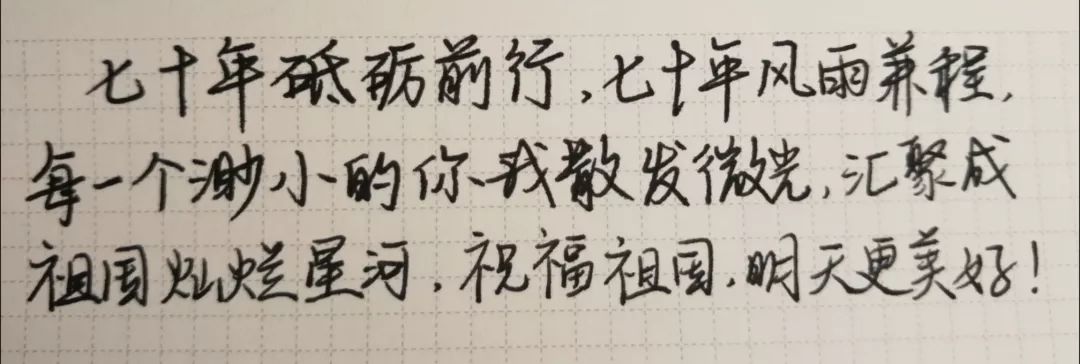 七十年砥砺前行，七十年风雨兼程，
每一个渺小的你、我散发微光，汇聚成
祖国灿烂星河，祝福祖国，明天更美好！